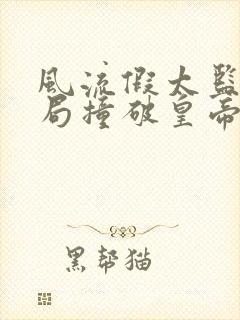 风流假太监
局撞破皇帝
黑帮猫